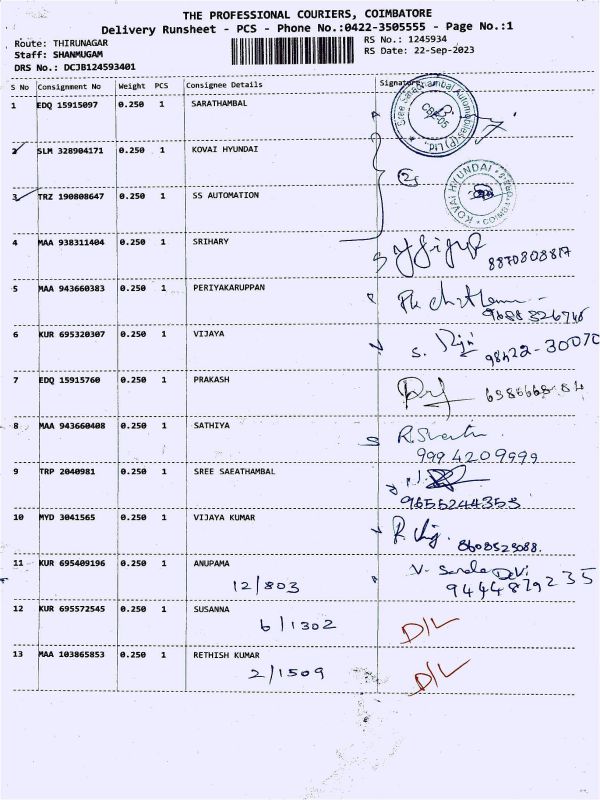 THE PROFESSIONAL COURIERS, COIMBATORE
Delivery Runsheet - PCS - Phone No.:0422-3505555 - Page No.:1
Route: THIRUNAGAR RS No.: 1245934
Staff: SHANMUGAM RS Date: 22-Sep-2023
DRS No.: DCJB124593401
S No Consignment No Weight PCS Consignee Details Signature
1 EDQ 15915097 0.250 1 SARATHAMBAL
2 SLM 328904171 0.250 1 KOVAI HYUNDAI
3 TRZ 190808647 0.250 1 SS AUTOMATION
KOVAI HYUNDAI
4 MAA 938311404 0.250 1 SRIHARY
8870808817
5 MAA 943660383 0.250 1 PERIYAKARUPPAN
9688326746
6 KUR 695320307 0.250 1 VIJAYA
98422-30070
7 EDQ 15915760 0.250 1 PRAKASH
8 MAA 943660408 0.250 1 SATHIYA
9994209999
9 TRP 2040981 0.250 1 SREE SAEATHAMBAL
9655244353
10 MYD 3041565 0.250 1 VIJAYA KUMAR
8608523088.
11 KUR 695409196 0.250 1 ANUPAMA V. Sarala Devi
12/803 9444879235
12 KUR 695572545 0.250 1 SUSANNA
6/1302 D/L
13 MAA 103865853 0.250 1 RETHISH KUMAR
2/1509 D/L